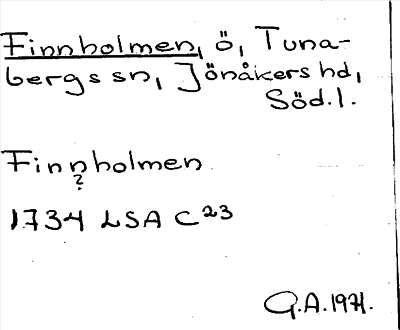 Finnholmen, ö, Tuna-
bergs sn, Jönåkers hd,
Söd.l.
Finnholmen
?
1734 LSA C23
G.A. 1971.